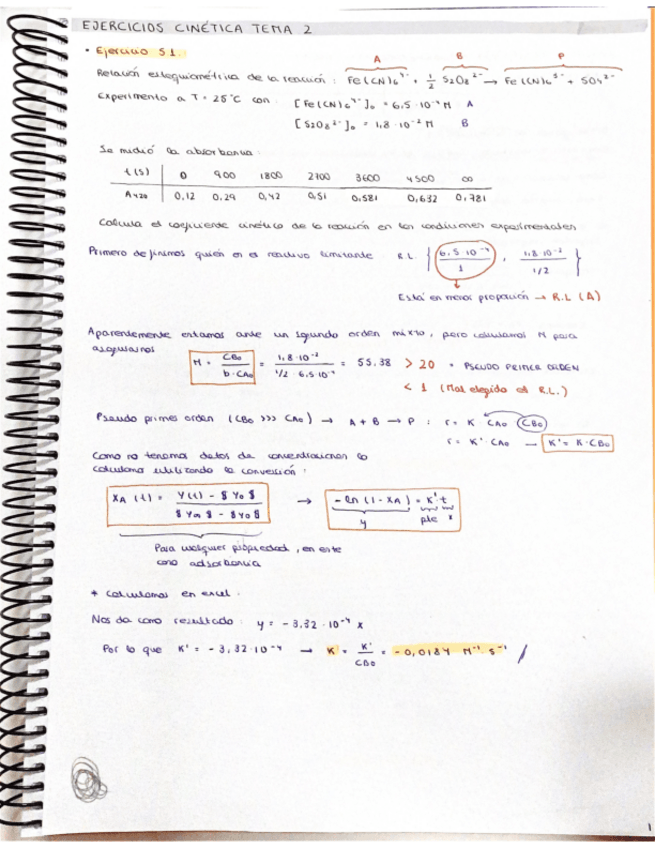 EJERCICIOS CINÉTICA TEMA 2
• Ejercicio 5.1.
A B P
Relación estequiométrica de la reacción : Fe(CN)6 4- + 1/2 S2O8 2- → Fe(CN)6 3- + SO4 2-
Experimento a T = 25°C con : [Fe(CN)6 4-]0 = 6,5 · 10-4 M A
[S2O8 2-]0 = 1,8 · 10-2 M B
Se midió la absorbancia :
t (s) 0 900 1800 2700 3600 4500 ∞
A420 0,12 0,29 0,42 0,51 0,581 0,632 0,781
Calcula el coeficiente cinético de la reacción en las condiciones experimentales
Primero definimos quién es el reactivo limitante R.L { 6,5 · 10-4 / 1 , 1,8 · 10-2 / 1/2 }
Está en menor proporción → R.L (A)
Aparentemente estamos ante un segundo orden mixto, pero calculamos M para
asegurarnos
M = CB0 / b · CA0 = 1,8 · 10-2 / 1/2 · 6,5 · 10-4 = 55,38 > 20 = PSEUDO PRIMER ORDEN
< 1 (Mal elegido el R.L.)
Pseudo primer orden (CB0 >>> CA0) → A + B → P : r = K CA0 CB0
r = K' · CA0 → K' = K · CB0
Como no tenemos datos de concentraciones lo
calculamos utilizando la conversión :
XA (t) = Y(t) - $ Y0 $ / $ Y∞ $ - $ Y0 $ → - ln (1 - XA) = K' t
y pte x
Para cualquier propiedad, en este
caso adsorbancia
* Calculamos en excel.
Nos da como resultado : y = - 3,32 · 10-4 x
Por lo que K' = - 3,32 · 10-4 → K = K' / CB0 = - 0,0184 M-1 · s-1
1